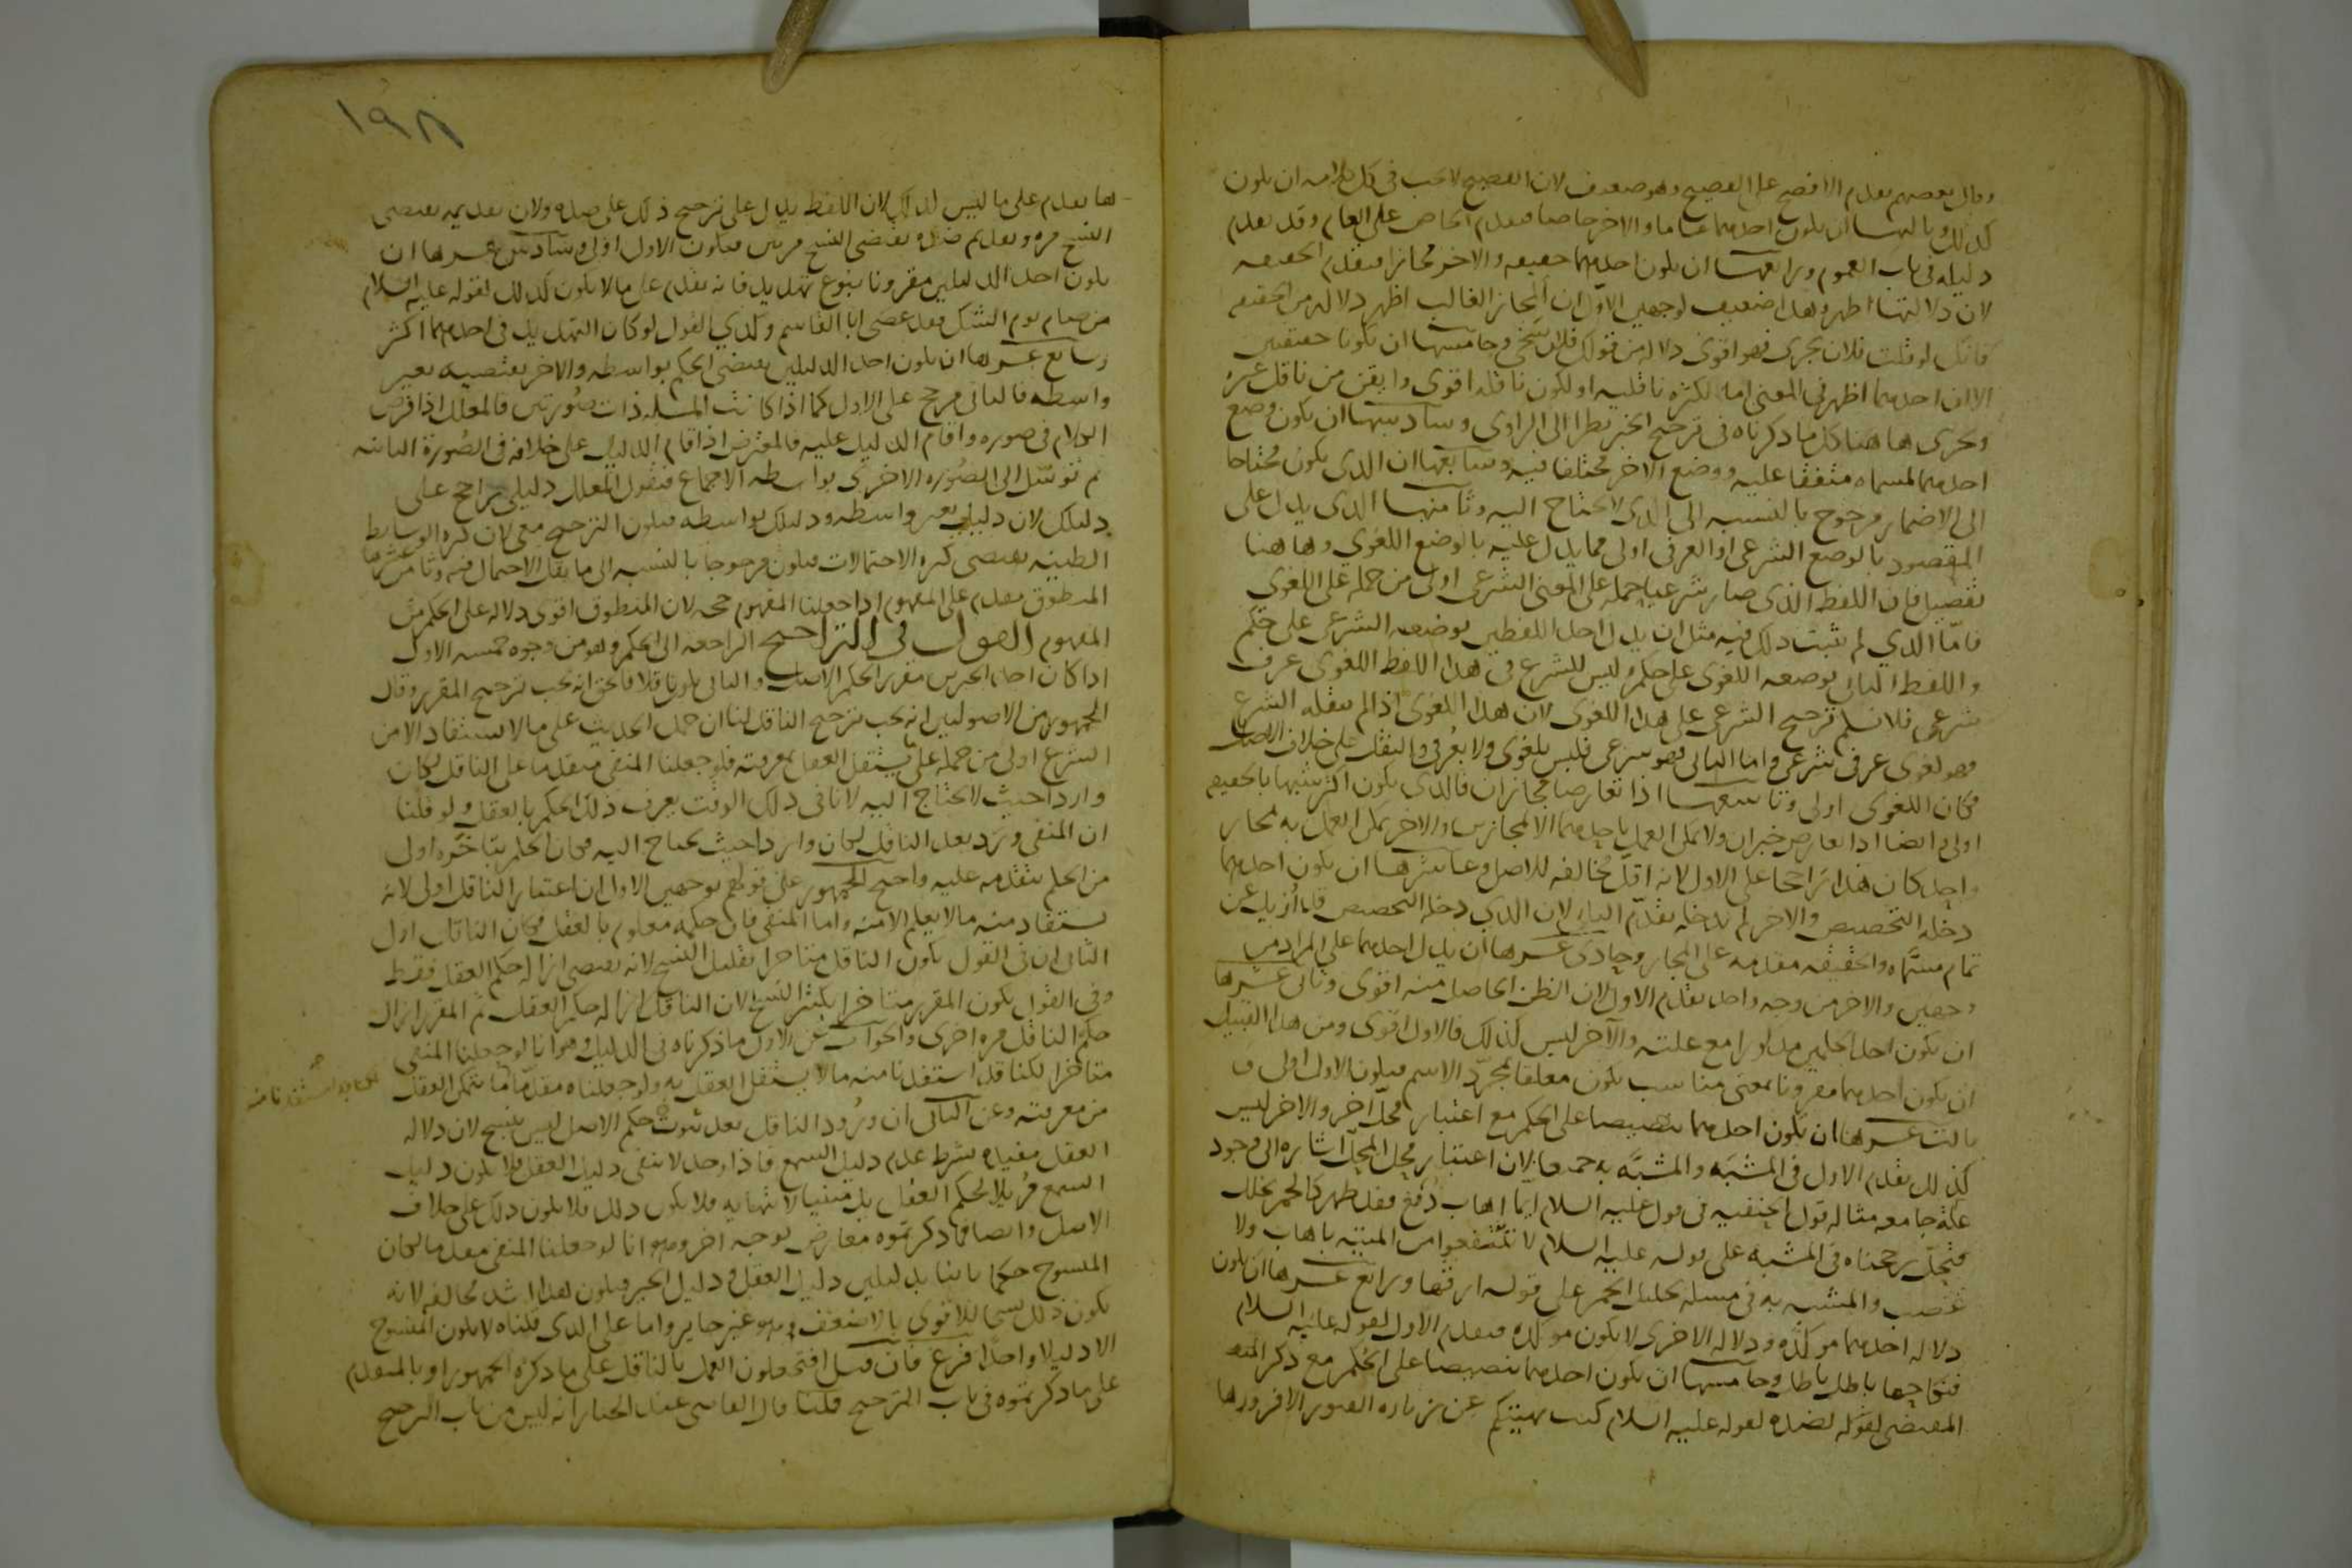 وقال بعضهم يقدم الافصح على الفصيح وهو ضعيف لان الفصيح لا يجب في كل كلامه ان يكون
كذلك وثالثها ان يكون احدهما عاما والاخر خاصا فيقدم الخاص على العام وقد تقدم
دليله في باب العموم ورابعها ان يكون احدهما حقيقه والاخر مجازا فيقدم الحقيقه
لان دلالتها اظهر وهذا ضعيف لوجهين الاول ان المجاز الغالب اظهر دلاله من الحقيقه
فانك لو قلت فلان بحرى فهو اقوى دلاله من قولك فلان سخي وخامسها ان يكونا حقيقتين
الا ان احدهما اظهر في المعنى اما لكثره ناقليه او لكون ناقله اقوى واتقن من ناقل غيره
ويجرى هاهنا كل ما ذكرناه في ترجيح الخبر نظرا الى الراوى وسادسها ان يكون وضع
احدهما لمسماه متفقا عليه ووضع الاخر مختلفا فيه وسابعها ان الذى يكون محتاجا
الى الاضمار مرجوح بالنسبه الى الذى لا يحتاج اليه وثامنها الذى يدل على
المقصود بالوضع الشرعى او العرفى اولى مما يدل عليه بالوضع اللغوي وهاهنا
تفصيل فان اللفظ الذى صار شرعيا حمله على المعنى الشرعى اولى من حمله على اللغوى
فامّا الذي لم يثبت ذلك فيه مثل ان يدل احد اللفظين بوضعه الشرعى على حكم
واللفظ الثانى بوضعه اللغوى على حكم وليس للشرع فى هذا اللفظ اللغوى عرف
شرعى فلا نسلم ترجيح الشرعى على هذا اللغوى لان هذا اللغوى اذا لم ينقله الشرع
فهو لغوى عرفى شرعى واما الثانى فهو شرعى فليس بلغوى ولا بعرفى والنقل على خلاف الاصل
فكان اللغوى اولى وتاسعها اذا تعارض مجازان فالذى يكون اكثر شبها بالحقيقه
اولى وايضا اذا تعارض خبران ولا يمكن العمل باحدهما الا بمجازين والاخر يمكن العمل به بمجاز
واحد كان هذا راجحا على الاول لانه اقلّ مخالفه للاصل وعاشرها ان يكون احدهما
دخله التخصيص والاخر لم يدخله يقدّم الثانى لان الذي دخله التخصيص قد أزيل عن
تمام مسمّاه والحقيقه مقدمه على المجاز وحادى عشرها ان يدل احدهما على المراد من
وجهين والاخر من وجه واحد يقدم الاول لان الظن الحاصل منه اقوى وثانى عشرها
ان يكون احد الحكمين مذكورا مع علته والآخر ليس كذلك فالاول اقوى ومن هذا القبيل
ان يكون احدهما مقرونا بمعنى مناسب يكون معلقا بمجرّد الاسم فيكون الاول اولى و
ثالث عشرها ان يكون احدهما تنصيصا على الحكم مع اعتبار بمحل آخر والاخر ليس
كذلك يقدم الاول فى المشبه والمشبّه به جميعا لان اعتبار محل بمحل اشاره الى وجود
علة جامعه مثاله قول الحنفيه فى قوله عليه السلام ايّما اهاب دُبغ فقد طهر كالخمر يخلل
فيحل رجحناه فى المشبه على قوله عليه السلام لا تنتفعوا من الميته باهاب ولا
عصب والمشبه به فى مسله تخليل الخمر على قوله ارقها ورابع عشرها ان يكون
دلاله احدهما موكّده ودلاله الاخرى لا يكون موكده فيقدم الاول لقوله عليه السلام
فنكاحها باطل باطل وخامسها ان يكون احدهما تنصيصا على الحكم مع ذكر
المقتضى لقوله لضده لقوله عليه السلام كنت نهيتكم عن زياره القبور الا فزوروها
١٩٨
ها يقدم على ما ليس كذلك لان اللفظ يدل على ترجيح ذلك على ضده ولان تقديمه يقتضى
النسخ مره وتقديم ضده يقتضى النسخ مرتين فيكون الاول اولى وسادس عشرها ان
يكون احد الدليلين مقرونا بنوع تهديد فانه يقدم على ما لا يكون كذلك لقوله عليه السلام
من صام يوم الشك فقد عصى ابا القاسم وكذى القول لو كان التهديد فى احدهما اكثر
وسابع عشرها ان يكون احد الدليلين يقتضى الحكم بواسطه والاخر يقتضيه بغير
واسطه فالثانى مرجح على الاول كما اذا كانت المسله ذات صُورتين فالمعلل اذا فرض
الكلام فى صوره واقام الدليل عليه فالمعترض اذا اقام الدليل على خلافه فى الصُورة الثانيه
ثم توسّل الى الصُوره الاخرى بواسطه الاجماع فيقول المعلل دليلى راجح على
دليلك لان دليلى بغير واسطه ودليلك بواسطه فيكون الترجيح معى لان كثره الوسايط
الظنيه يقتضى كثره الاحتمالات فيكون مرجوحا بالنسبه الى ما يقل الاحتمال فيه وثامن عشرها
المنطوق مقدم على المفهوم اذا جعلنا المفهوم حجه لان المنطوق اقوى دلاله على الحكم من
المفهوم القول فى التراجيح الراجعه الى الحكم وهو من وجوه خمسه الاول
اذا كان احد الخبرين مقررا لحكم الاصل والثانى يكون ناقلا فالحق انه يجب ترجيح المقرر وقال
الجمهور من الاصوليين انه يجب ترجيح الناقل لنا ان حمل الحديث على ما لا يستفاد الا من
الشرع اولى من حمله على ما يستقل العقل بمعرفته فلو جعلنا المبقى متقدما على الناقل لكان
واردا حيث لا يحتاج اليه لانا فى ذلك الوقت نعرف ذلك الحكم بالعقل ولو قلنا
ان المبقى ورد بعد الناقل لكان واردا حيث يحتاج اليه فكان الحكم بتاخّره اولى
من الحكم بتقدمه عليه واحتج الجمهور على قولهم بوجهين الاول ان اعتبار الناقل اولى لانه
يستفاد منه ما لا يعلم الا منه واما المبقى فان حكمه معلوم بالعقل فكان الناقل اولى
الثانى ان فى القول بكون الناقل متاخرا تقليل النسخ لانه يقتضى ازاله حكم العقل فقط
وفى القول بكون المقرر متاخرا يكثر النسخ لان الناقل ازال حكم العقل ثم المقرر ازال
حكم الناقل مره اخرى والجواب عن الاول ما ذكرناه فى الدليل وهو انا لو جعلنا المبقى
متاخرا لكنا قد استفدنا منه ما لا يستقل العقل به ولو جعلناه مقدّما لما تمكن العقل
من معرفته وعن الثانى ان ورُود الناقل بعد ثبوت حكم الاصل ليس بنسخ لان دلاله
العقل مقيده بشرط عدم دليل السمع فاذا وجد لا يبقى دليل العقل فلا يكون دليل
السمع مُزيلا لحكم العقل بل مبينا لانتهايه فلا يكون ذلك فلا يكون ذلك على خلاف
الاصل وايضا فما ذكرتموه معارض بوجه اخر وهو انا لو جعلنا المبقى مقدما لكان
المنسوخ حكما ثابتا بدليلين دليل العقل ودليل الخبر فيكون هذا اشد مخالفه لانه
يكون ذلك نسخا للاقوى بالاضعف وهو غير جايز واما على الذى قلناه لا يكون المنسوخ
الا دليلا واحدًا فرع فان قيل افتجعلون العمل بالناقل على ما ذكره الجمهور او بالمتقدم
على ما ذكرتموه فى باب الترجيح قلنا قال القاضى عبد الجبار انه ليس من باب الترجيح